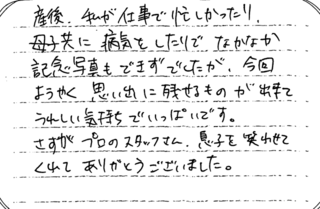 産後、私が仕事で忙しかったり、
母子共に病気をしたりで なかなか
記念写真もできずでしたが、今回
ようやく 思い出に残せるものが出来て
うれしい気持ちでいっぱいです。
さすが プロのスタッフさん、息子を笑わせて
くれて ありがとうございました。